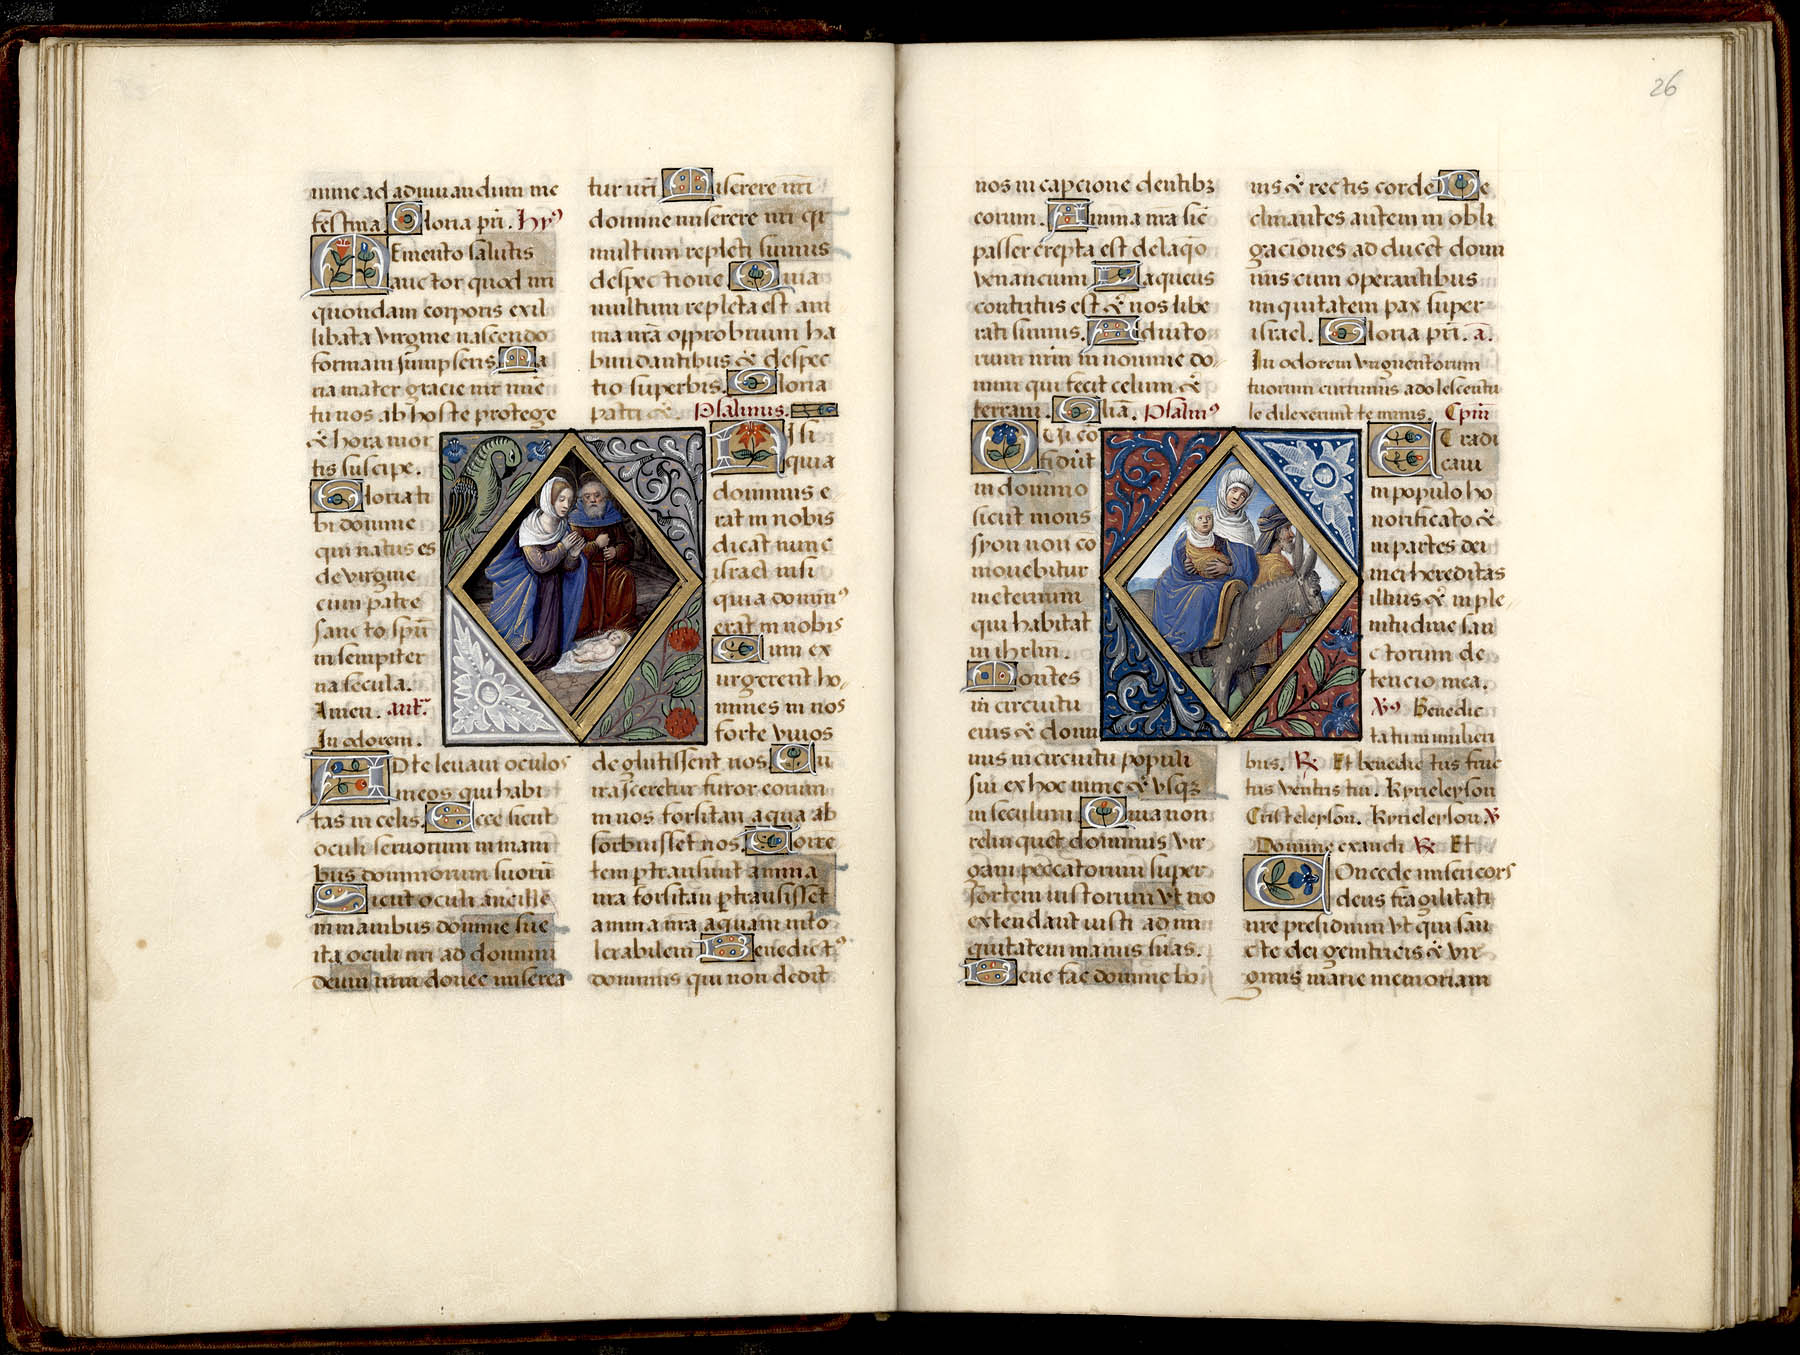 mine ad adiuuandum me
festina. Gloria pri. Hy⁹
Memento salutis
auctor quod nri
quondam corporis exil
libata virgine nascendo
formam sumpseris Ma
ria mater gracie mr mie
tu nos ab hoste protege
& hora mor
tis suscipe.
Gloria ti
bi domine
qui natus es
de virgine
cum patre
sancto spu
in sempiter
na secula.
Amen. ant.
In odorem.
AD te leuaui oculos
meos qui habi
tas in celis. Ecce sicut
oculi seruorum in mani
bus dominorum suoru
Sicut oculi ancille
in manibus domine sue
ita oculi nri ad dominu
deum nrm donec miserea
tur nri Miserere nri
domine miserere nri qr
multum repleti sumus
despectione Quia
multum repleta est ani
ma nra opprobrium ha
bundantibus & despec
tio superbis. Gloria
patri &. Psalmus.
NIsi
quia
dominus e
rat in nobis
dicat nunc
israel nisi
quia domin⁹
erat in nobis
Cum ex
urgerent ho
mines in nos
forte viuos
deglutissent nos. Cu
irasceretur furor eorum
in nos forsitan aqua ab
sorbuisset nos. Torre
tem ptransiuit anima
nra forsitan ptransisset
anima nra aquam into
lerabilem Benedict⁹
dominus qui non dedit
26
nos in capcione dentibꝫ
eorum. Anima nra sic
passer erepta est de laqo
venancium Laqueus
contritus est & nos libe
rati sumus. Adiuto
rium nrm in nomine do
mini qui fecit celum &
terram. Gliã. Psalm⁹
QUi co
fidut
in domino
sicut mons
syon non co
mouebitur
in eternum
qui habitat
in ihrlm.
Montes
in circuitu
eius & domi
nus in circuitu populi
sui ex hoc nunc & vsqꝫ
in seculum. Quia non
relinquet dominus vir
gam peccatorum super
sortem iustorum vt no
extendant iusti ad ini
quitatem manus suas.
Bene fac domine bo
nis & rectis corde De
clinantes autem in obli
gaciones ad ducet domi
nus cum operantibus
iniquitatem pax super
israel. Gloria pri. a.
In odorem vnguentorum
tuorum currimus adolescentu
le dilexerunt te nimis. Cpim
ET radi
caui
in populo ho
norificato &
in partes dei
mei hereditas
illius & in ple
nitudine san
ctorum de
tencio mea.
V⁹ Benedic
ta tu in mulieri
bus. R Et benedictus fruc
tus ventris tui. Kyrieleyson
Cristeleyson. Kyrieleyson V
Domine exaudi R Et
COncede misericors
deus fragilitati
nre presidium vt qui san
cte dei genitricis & vir
ginis marie memoriam